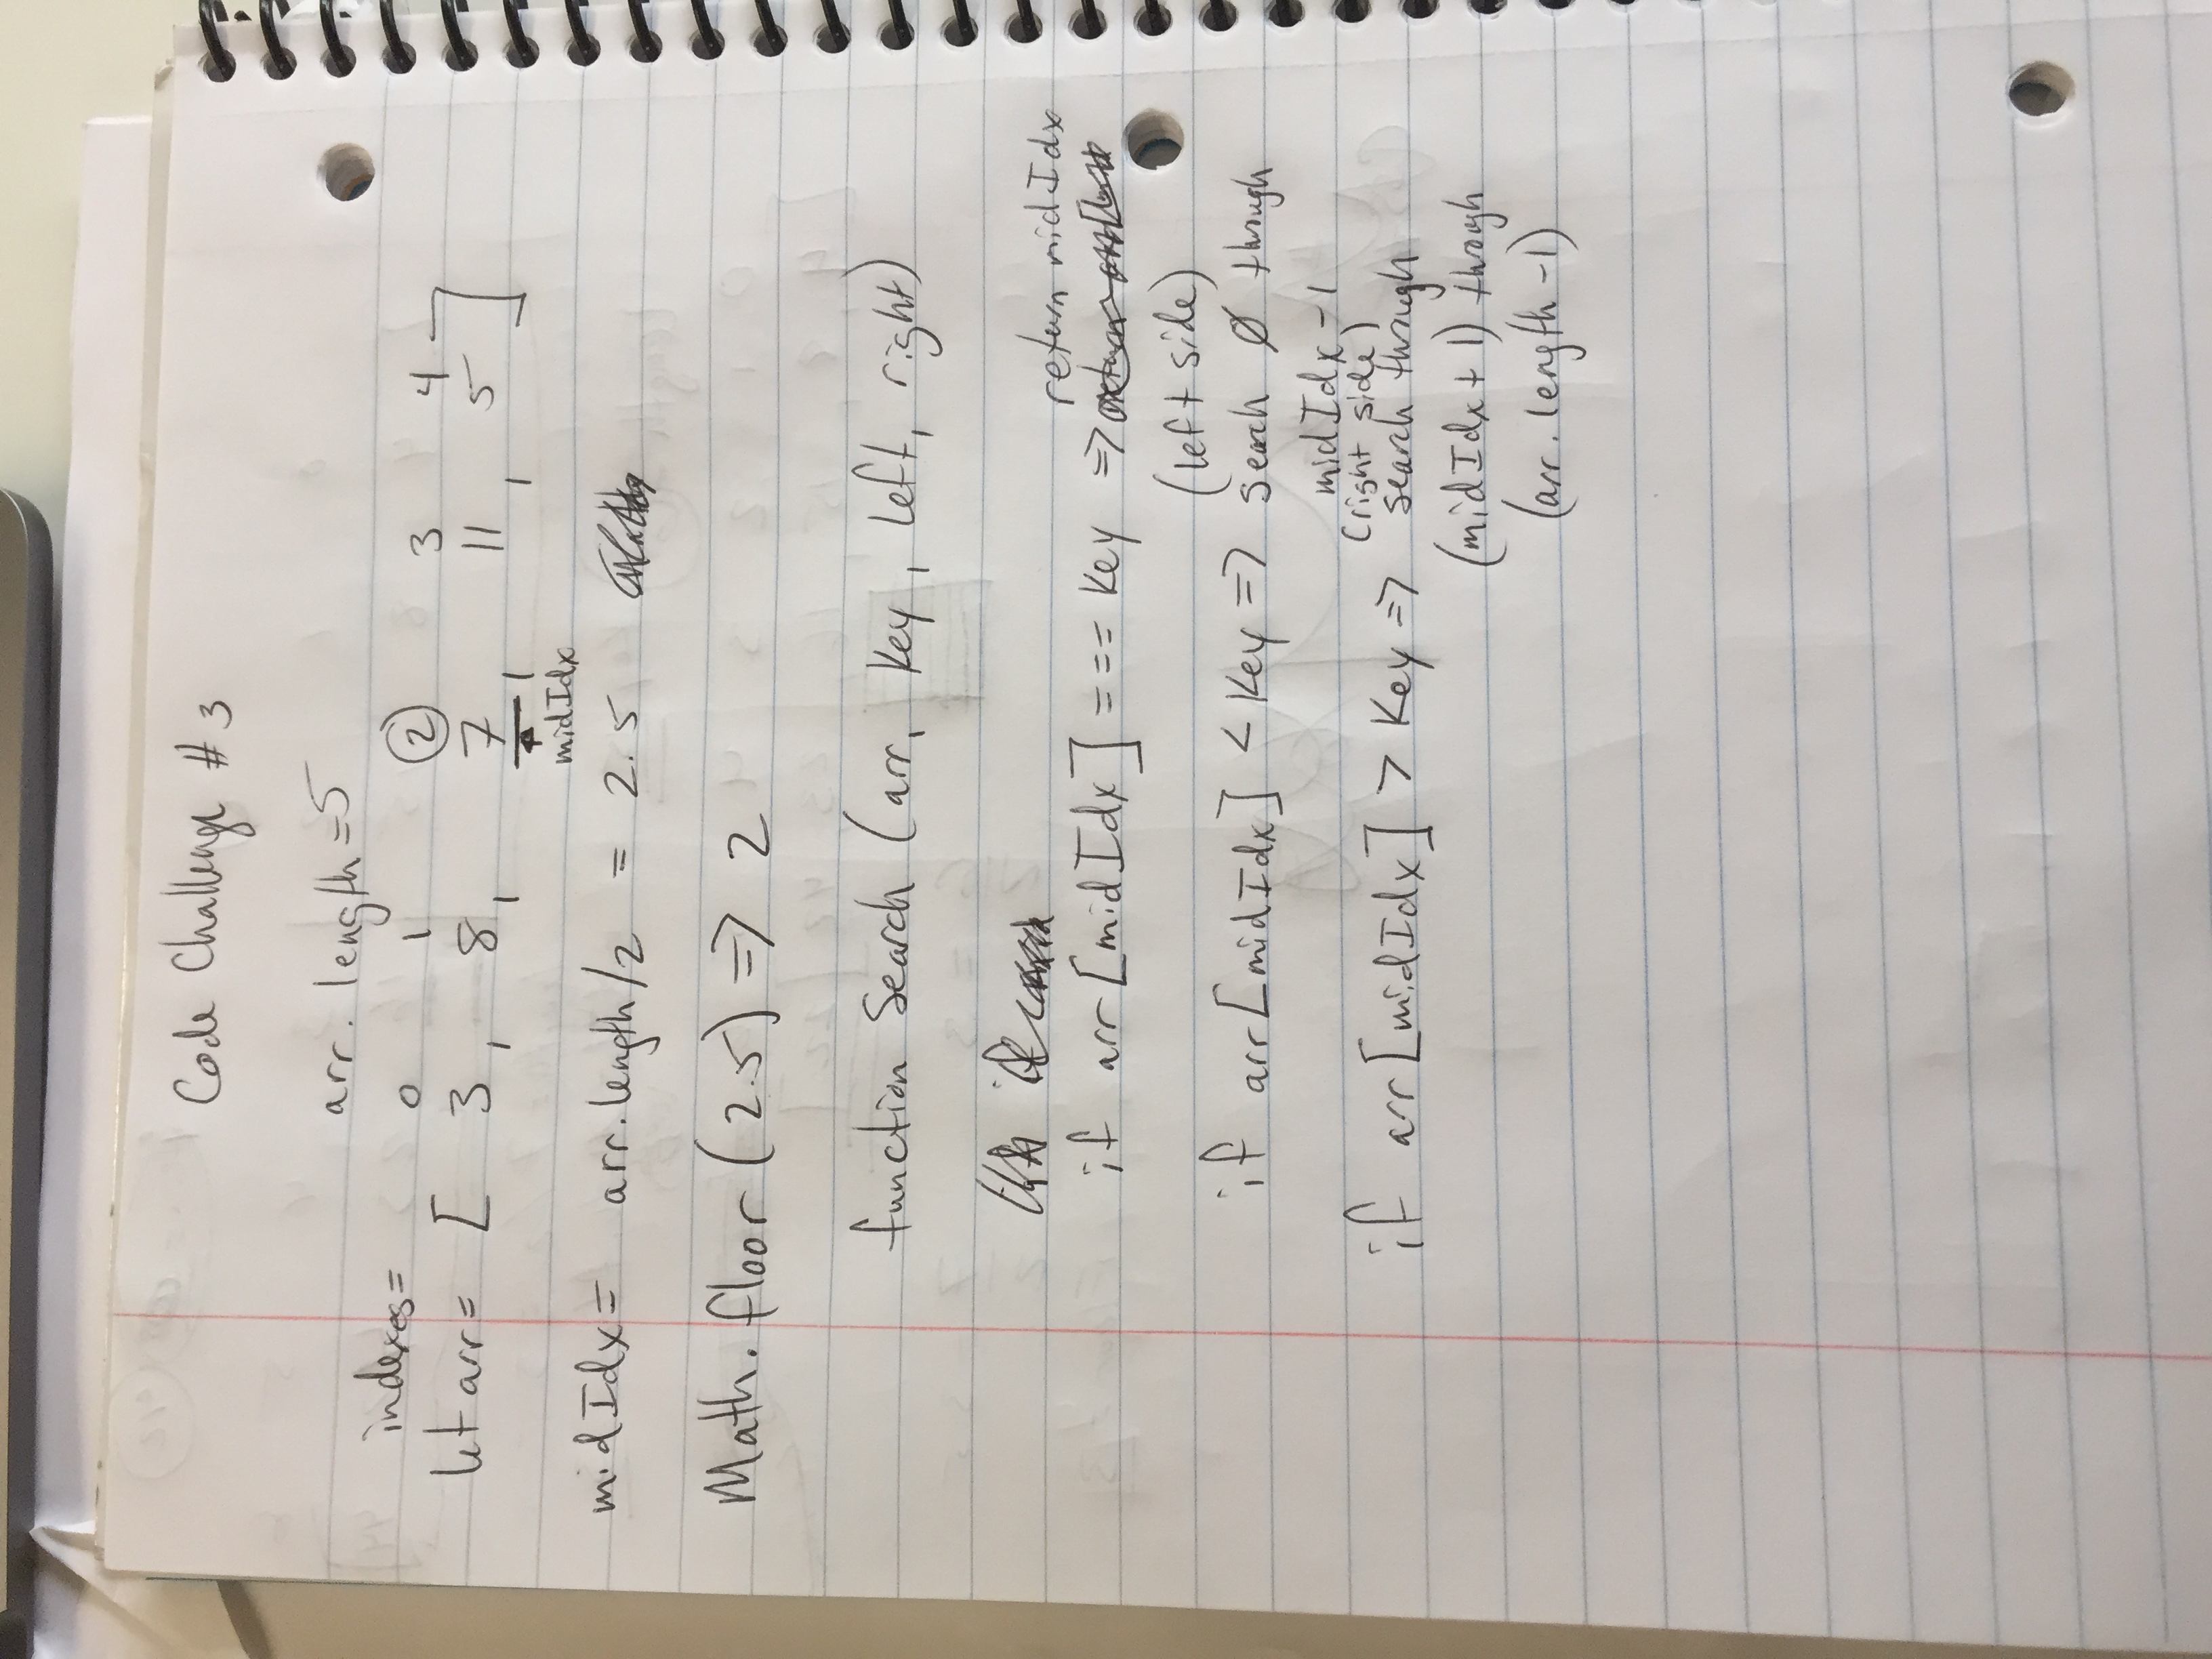 Code Challenge #3
arr.length=5
indexes= 0 1 2 3 4
let arr= [ 3, 8, 7, 11, 5 ]
midIdx
midIdx= arr.length/2 = 2.5
Math.floor(2.5) => 2
function Search (arr, Key, left, right)
return midIdx
if arr[midIdx] === Key =>
(left side)
if arr[midIdx] < Key => search Ø through
midIdx-1
(right side)
if arr[midIdx] > Key => search through
(midIdx+1) through
(arr.length-1)